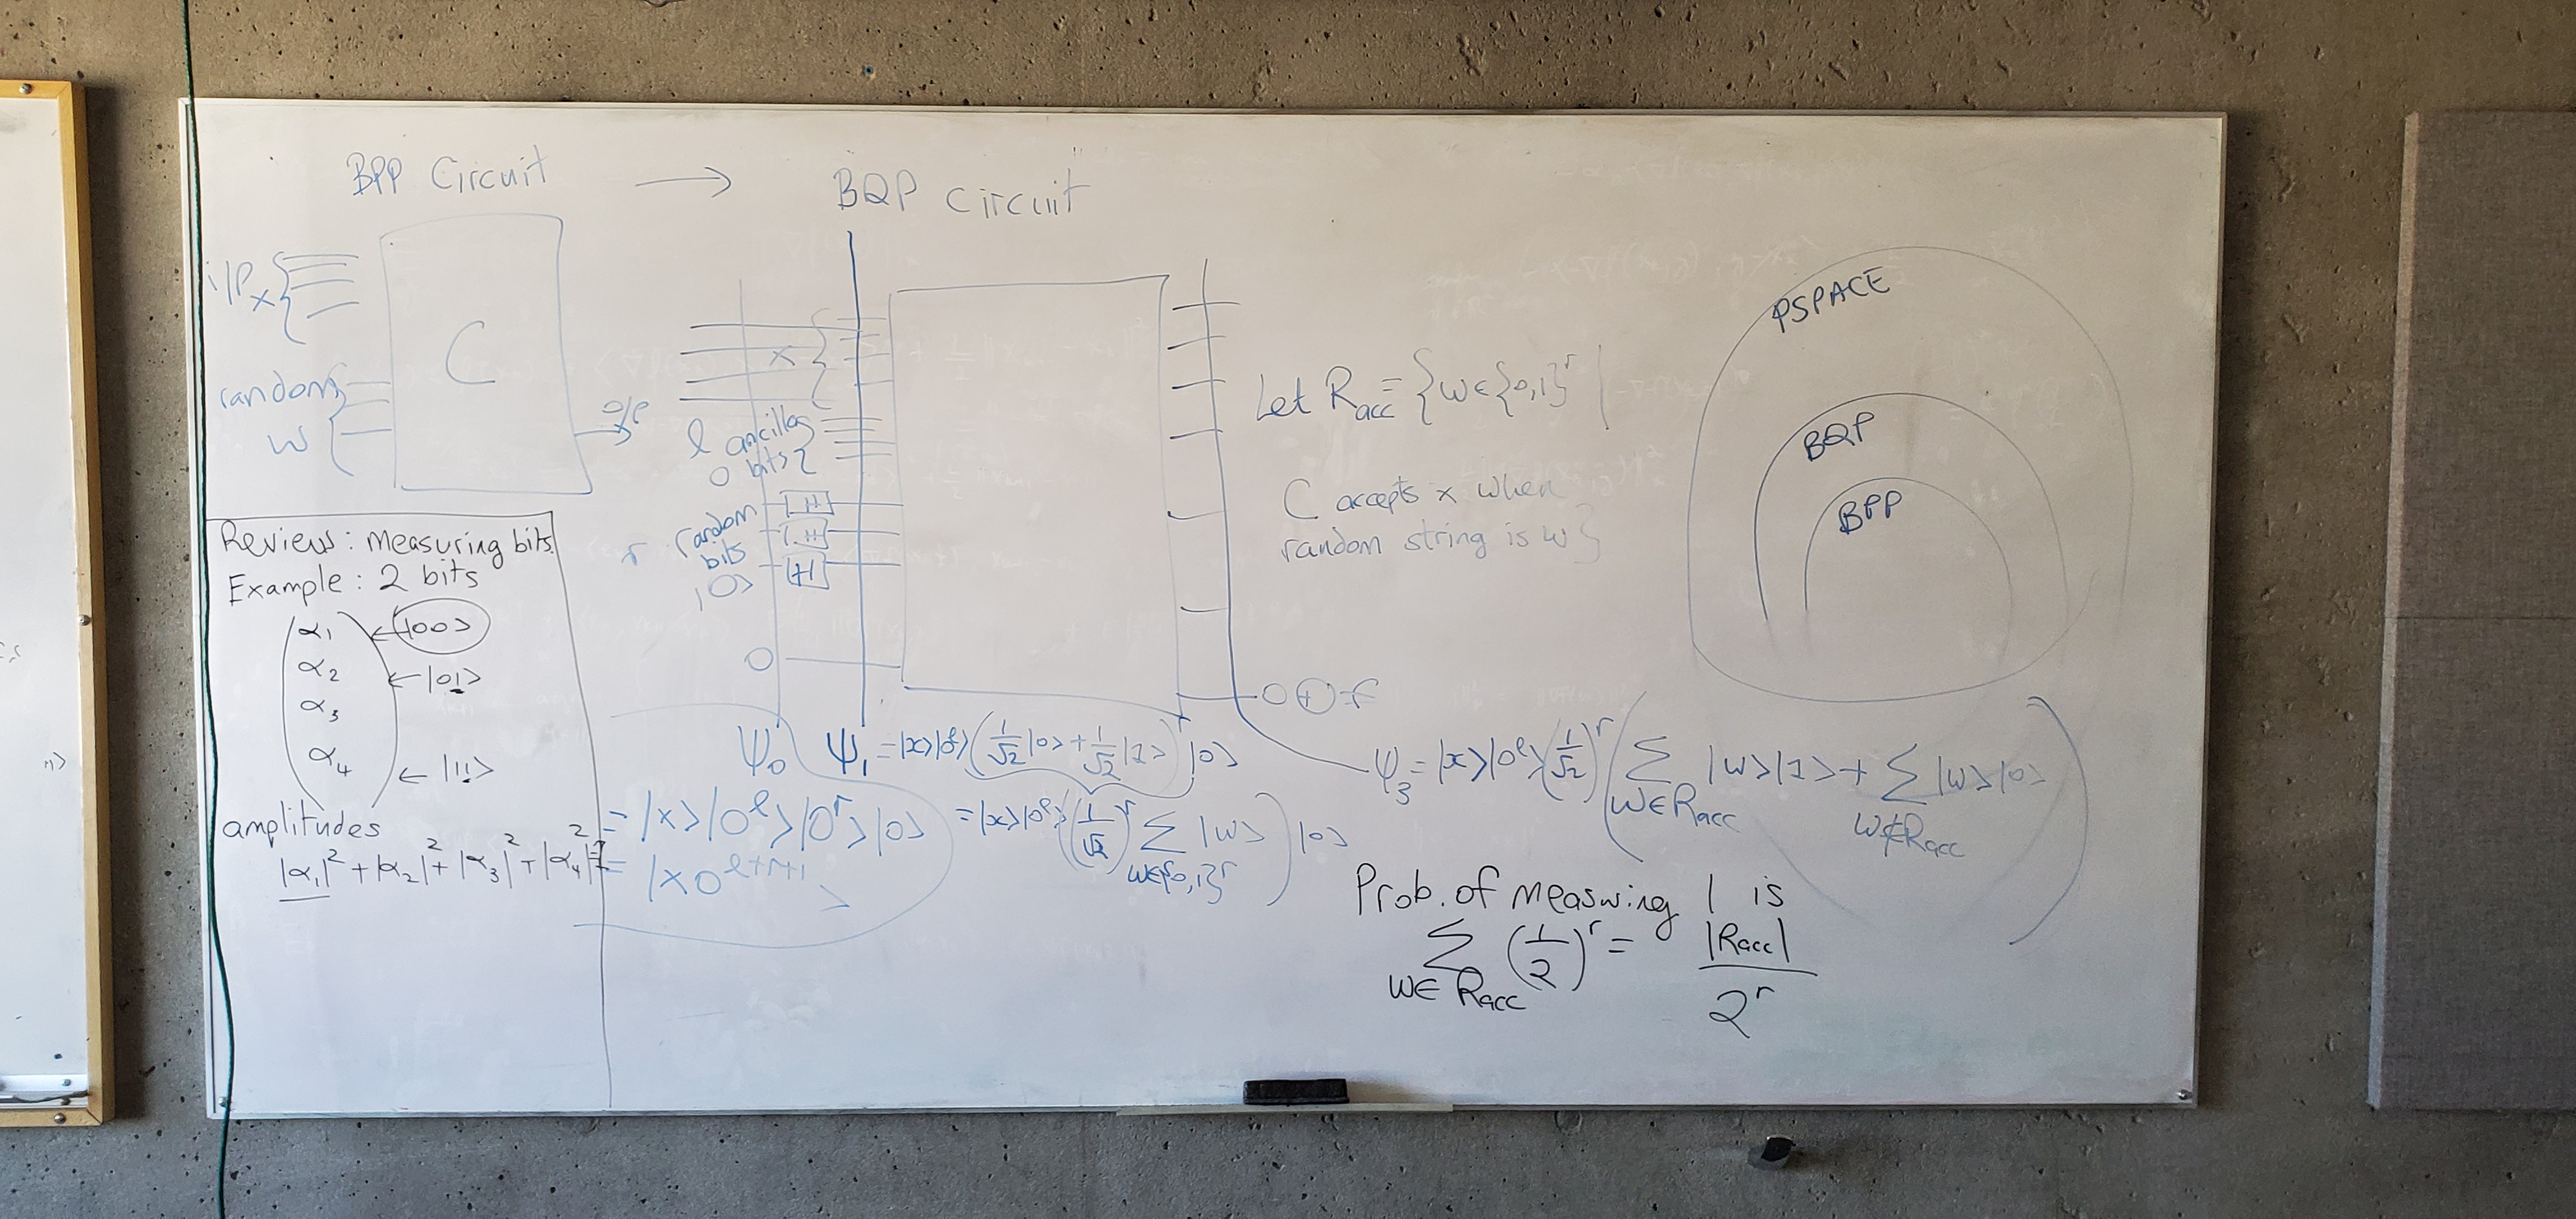 BPP Circuit → BQP Circuit
i/p x {
C
random w {
o/p
x {
l ancilla 0 bits {
r random bits |0>
H
H
H
0
0 ⊕ f
Let R_acc = {w ∈ {0,1}^r |
C accepts x when
random string is w}
PSPACE
BQP
BPP
Review: Measuring bits
Example: 2 bits
α₁ ← |00>
α₂ ← |01>
α₃
α₄ ← |11>
amplitudes
|α₁|² + |α₂|² + |α₃|² + |α₄|²
ψ₀
= |x>|0^l>|0^r>|0>
= |x0^{l+r+1}>
ψ₁ = |x>|0^l>(1/√2 |0> + 1/√2 |1>)^r |0>
= |x>|0^l>((1/√2)^r Σ_{w∈{0,1}^r} |w>)|0>
ψ₃ = |x>|0^l>(1/√2)^r (Σ_{w∈R_acc} |w>|1> + Σ_{w∉R_acc} |w>|0>)
Prob. of measuring 1 is
Σ_{w∈R_acc} (1/2)^r = |R_acc| / 2^r